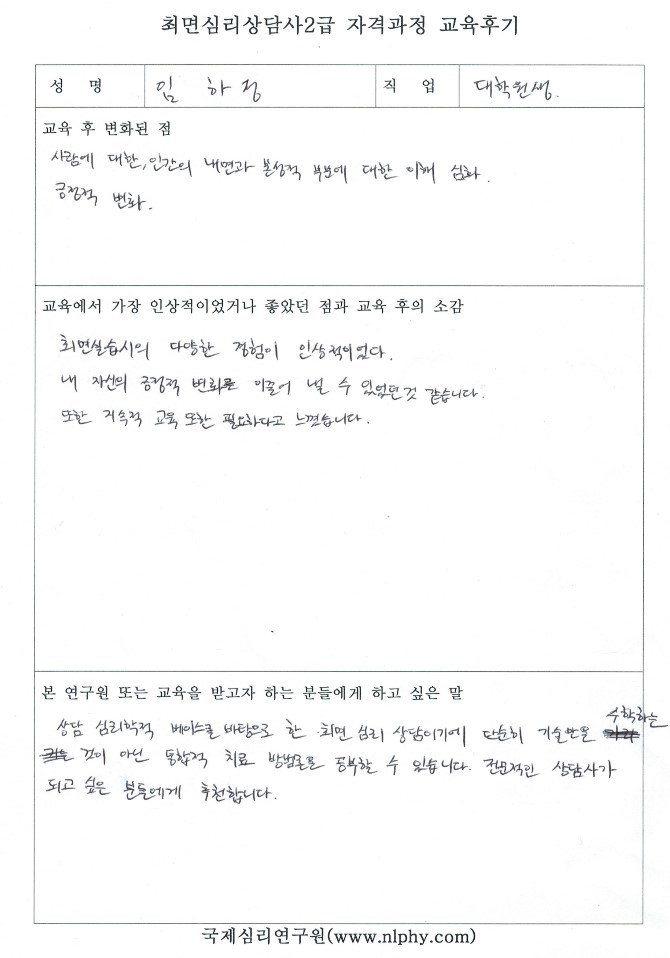 최면심리상담사2급 자격과정 교육후기
성 명 임 하 정 직 업 대학원생.
교육 후 변화된 점
사람에 대한, 인간의 내면과 본성적 부분에 대한 이해 심화.
긍정적 변화.
교육에서 가장 인상적이었거나 좋았던 점과 교육 후의 소감
최면실습시의 다양한 경험이 인상적이었다.
내 자신의 긍정적 변화를 이끌어 낼 수 있었던것 같습니다.
또한 지속적 교육 또한 필요하다고 느꼈습니다.
본 연구원 또는 교육을 받고자 하는 분들에게 하고 싶은 말
상담 심리학적 베이스를 바탕으로 한 최면 심리 상담이기에 단순히 기술만을 수학하는
것이 아닌 통합적 치료 방법론을 공부할 수 있습니다. 전문적인 상담사가
되고 싶은 분들에게 추천합니다.
국제심리연구원(www.nlphy.com)